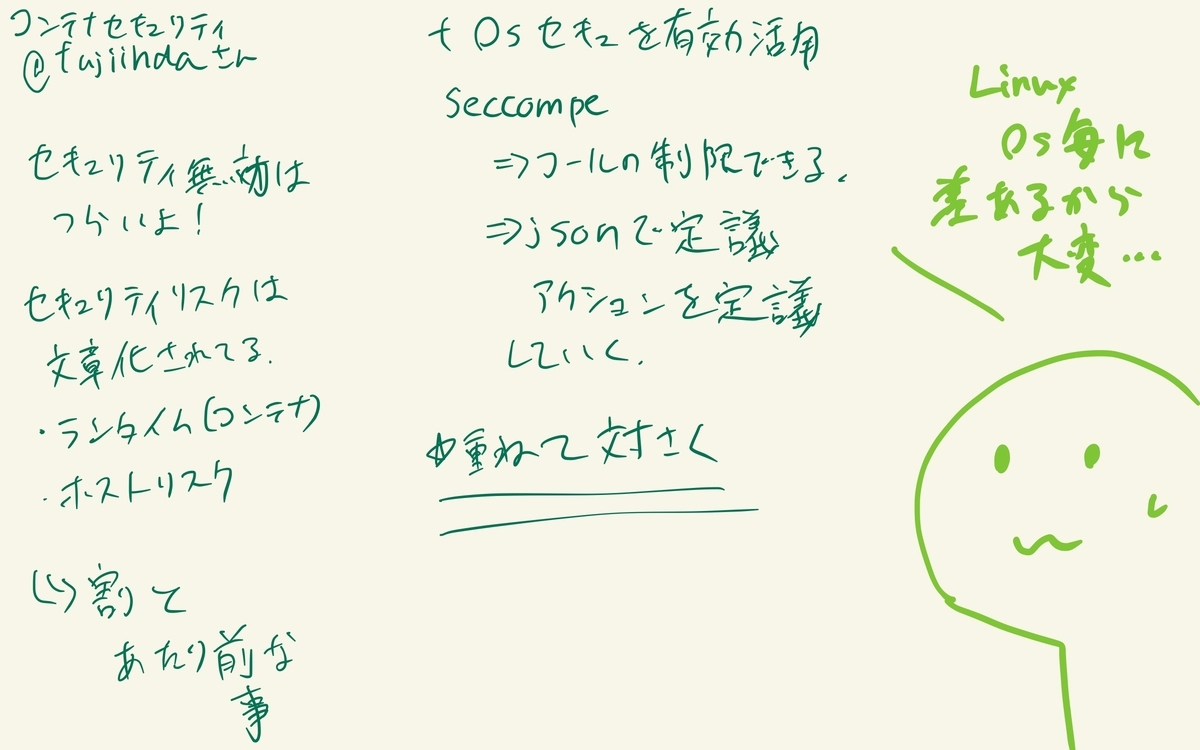 コンテナセキュリティ
@fujiihdaさん
セキュリティ無効は
つらいよ!
セキュリティリスクは
文章化されてる.
・ランタイム(コンテナ)
・ホストリスク
割と
あたり前な
事
+ OSセキュを有効活用
Seccompe
⇒コールの制限できる.
⇒jsonで定議
アクションを定議
していく.
重ねて対さく
Linux
OS毎に
差あるから
大変…